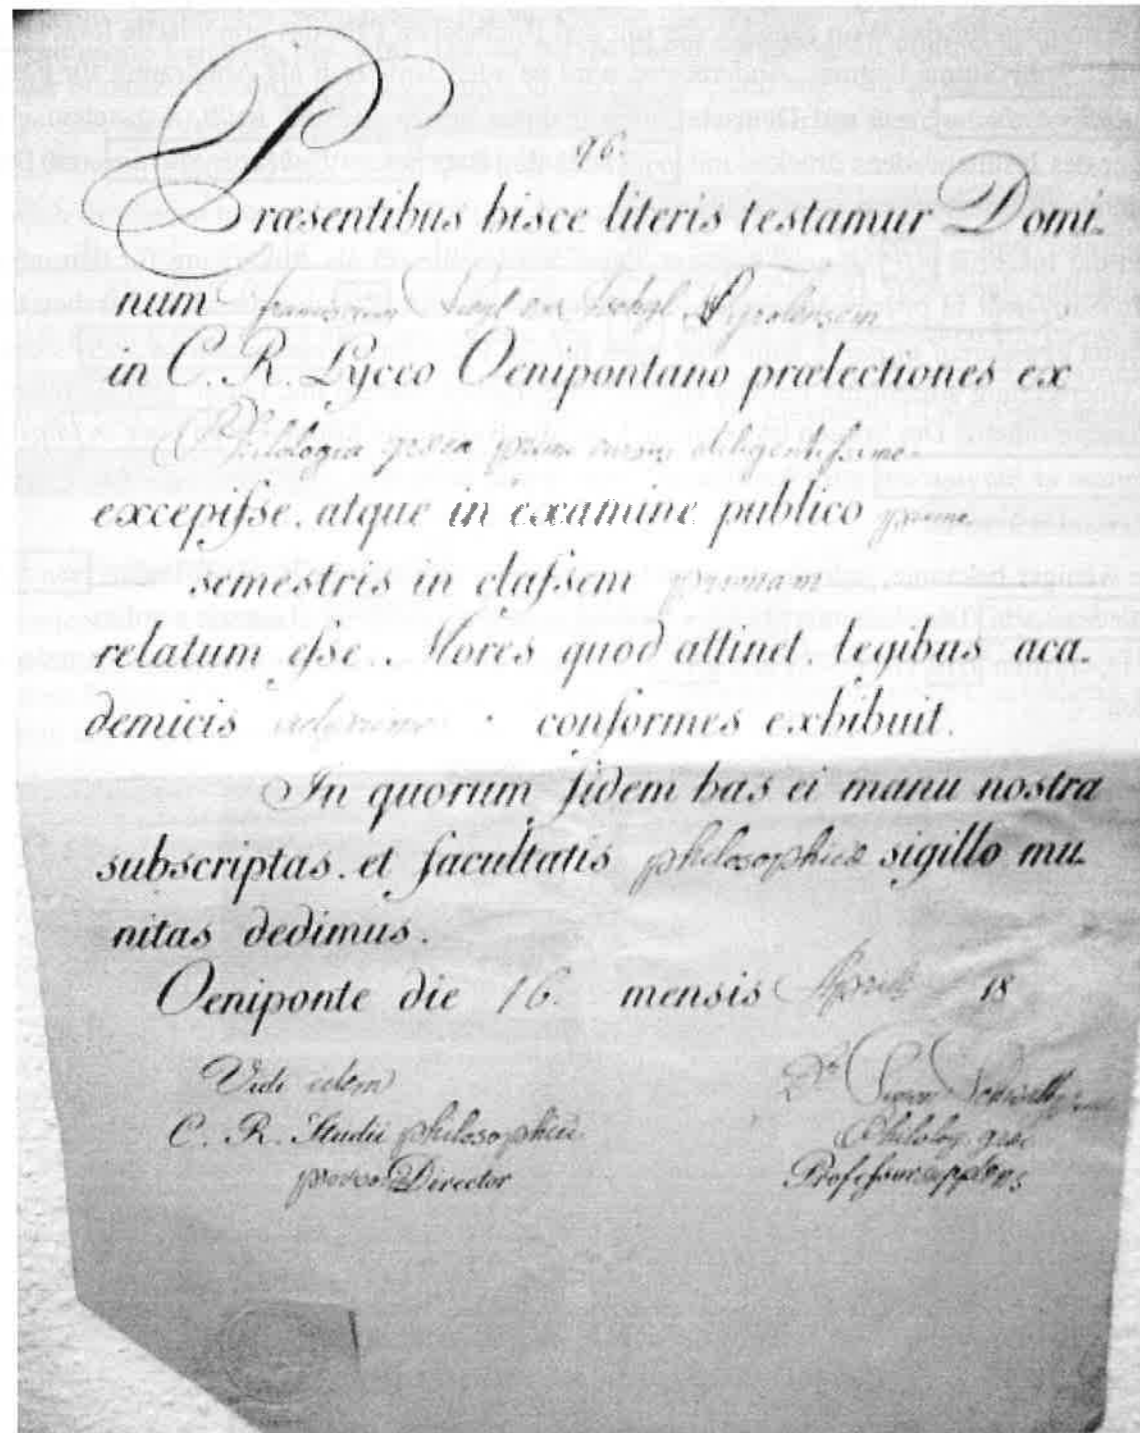 96.
Præsentibus hisce literis testamur Domi-
num Franciscum Tyrolensem
in C. R. Lyceo Oenipontano prælectiones ex
Philologia græca primi cursus diligentissime
excepisse, atque in examine publico primi
semestris in classem primam
relatum esse. Mores quod attinet, legibus aca-
demicis conformes exhibuit.
In quorum fidem has ei manu nostra
subscriptas, et facultatis philosophicæ sigillo mu-
nitas dedimus.
Oeniponte die 16. mensis Aprilis 18
Vidi
C. R. Studii philosophici
Director
Dr
Philolog. græc
Professor supplens